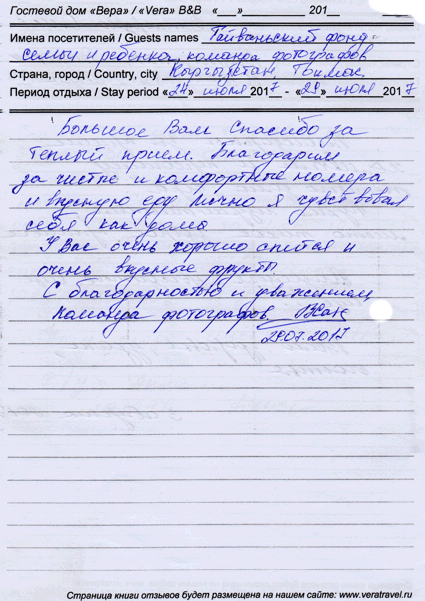 Гостевой дом «Вера» / «Vera» B&B «__» __________ 201__
Имена посетителей / Guests names Тайваньский фонд -
семьи и ребенка, команда фотографов
Страна, город / Country, city Кыргызстан, Токмок.
Период отдыха / Stay period «24» июля 2017 - «29» июля 2017
Большое Вам спасибо за
теплый прием. Благодарим
за чистые и комфортные номера
и вкусную еду Лично я чувствовал
себя как дома
У Вас очень хорошо спится и
очень вкусные фрукты.
С благодарностью и уважением
Команда фотографов.
29.07.2017
Страница книги отзывов будет размещена на нашем сайте: www.veratravel.ru